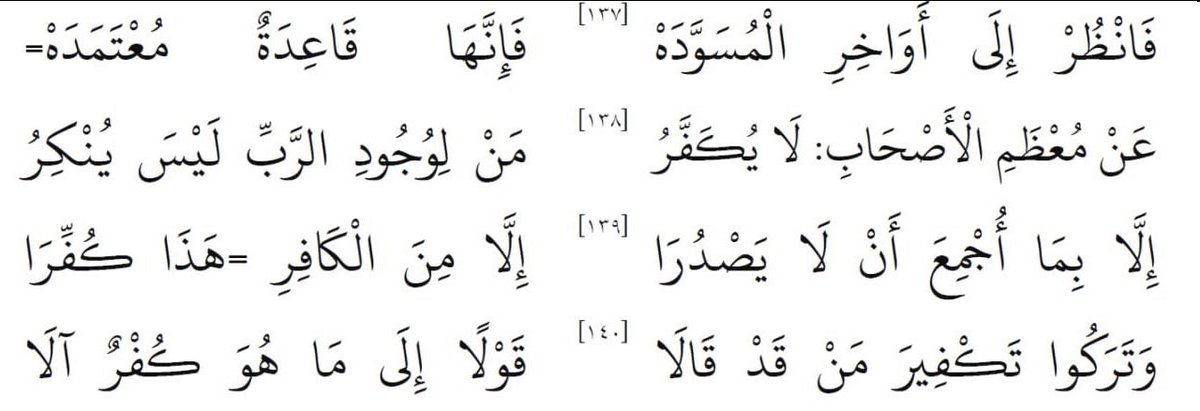 فَانْظُرْ إِلَى أَوَاخِرِ الْمُسَوَّدَهْ [١٣٧] فَإِنَّهَا قَاعِدَةٌ مُعْتَمَدَهْ=
عَنْ مُعْظَمِ الْأَصْحَابِ: لَا يُكَفَّرُ [١٣٨] مَنْ لِوُجُودِ الرَّبِّ لَيْسَ يُنْكِرُ
إِلَّا بِمَا أُجْمِعَ أَنْ لَا يَصْدُرَا [١٣٩] إِلَّا مِنَ الْكَافِرِ =هَذَا كُفِّرَا
وَتَرَكُوا تَكْفِيرَ مَنْ قَدْ قَالَا [١٤٠] قَوْلًا إِلَى مَا هُوَ كُفْرٌ آلَا